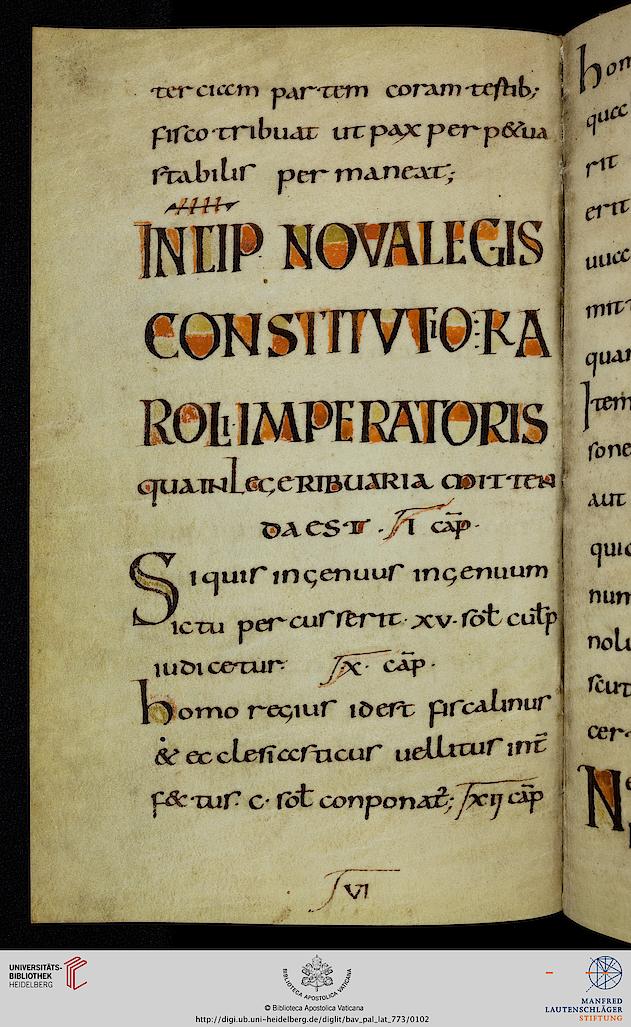 terciam partem coram testib;
fisco tribuat ut pax perp&ua
stabilis permaneat;
INCIP NOVA LEGIS
CONSTITUTIO: KA
ROLI IMPERATORIS
QUA IN LEGE RIBUARIA MITTEN
DA EST. cāp.
Siquis ingenuus ingenuum
ictu percusserit. xv. sol culp
iudicetur. cāp.
homo regius id est fiscalinus
& ecclesiasticus vel litus int
f&tus. c. sol conponat; cāp
VI
hom
quae
rit
erit
mit
quar
Item
sone
aut
quic
num
nolu
scut
cer
Ne
UNIVERSITÄTS-
BIBLIOTHEK
HEIDELBERG
BIBLIOTECA APOSTOLICA VATICANA
© Biblioteca Apostolica Vaticana
http://digi.ub.uni-heidelberg.de/diglit/bav_pal_lat_773/0102
MANFRED
LAUTENSCHLÄGER
STIFTUNG